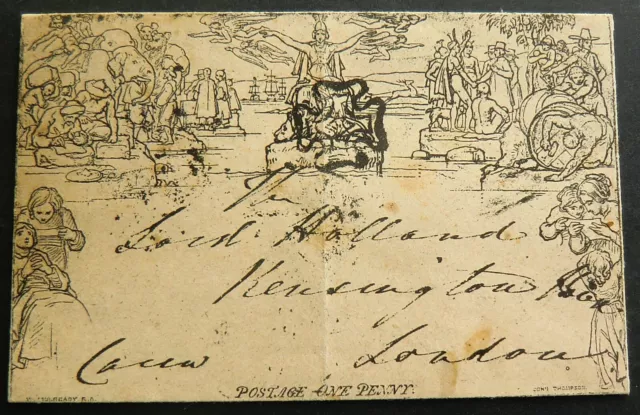 Lord Holland
Kensington
London
POSTAGE ONE PENNY.
W. MULREADY R.A.
JOHN THOMPSON